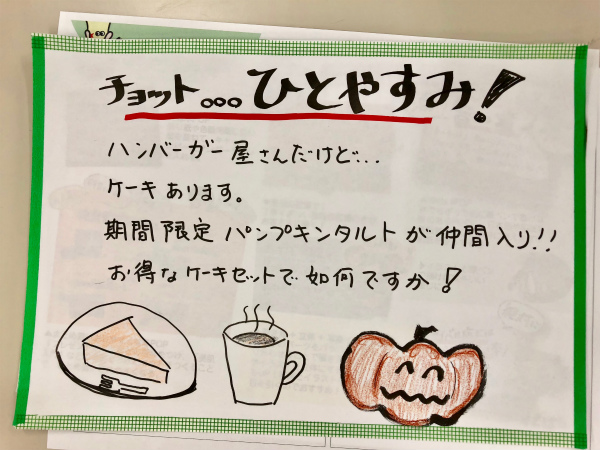 チョット...ひとやすみ!
ハンバーガー屋さんだけど...
ケーキあります。
期間限定 パンプキンタルトが仲間入り!!
お得なケーキセットで如何ですか!